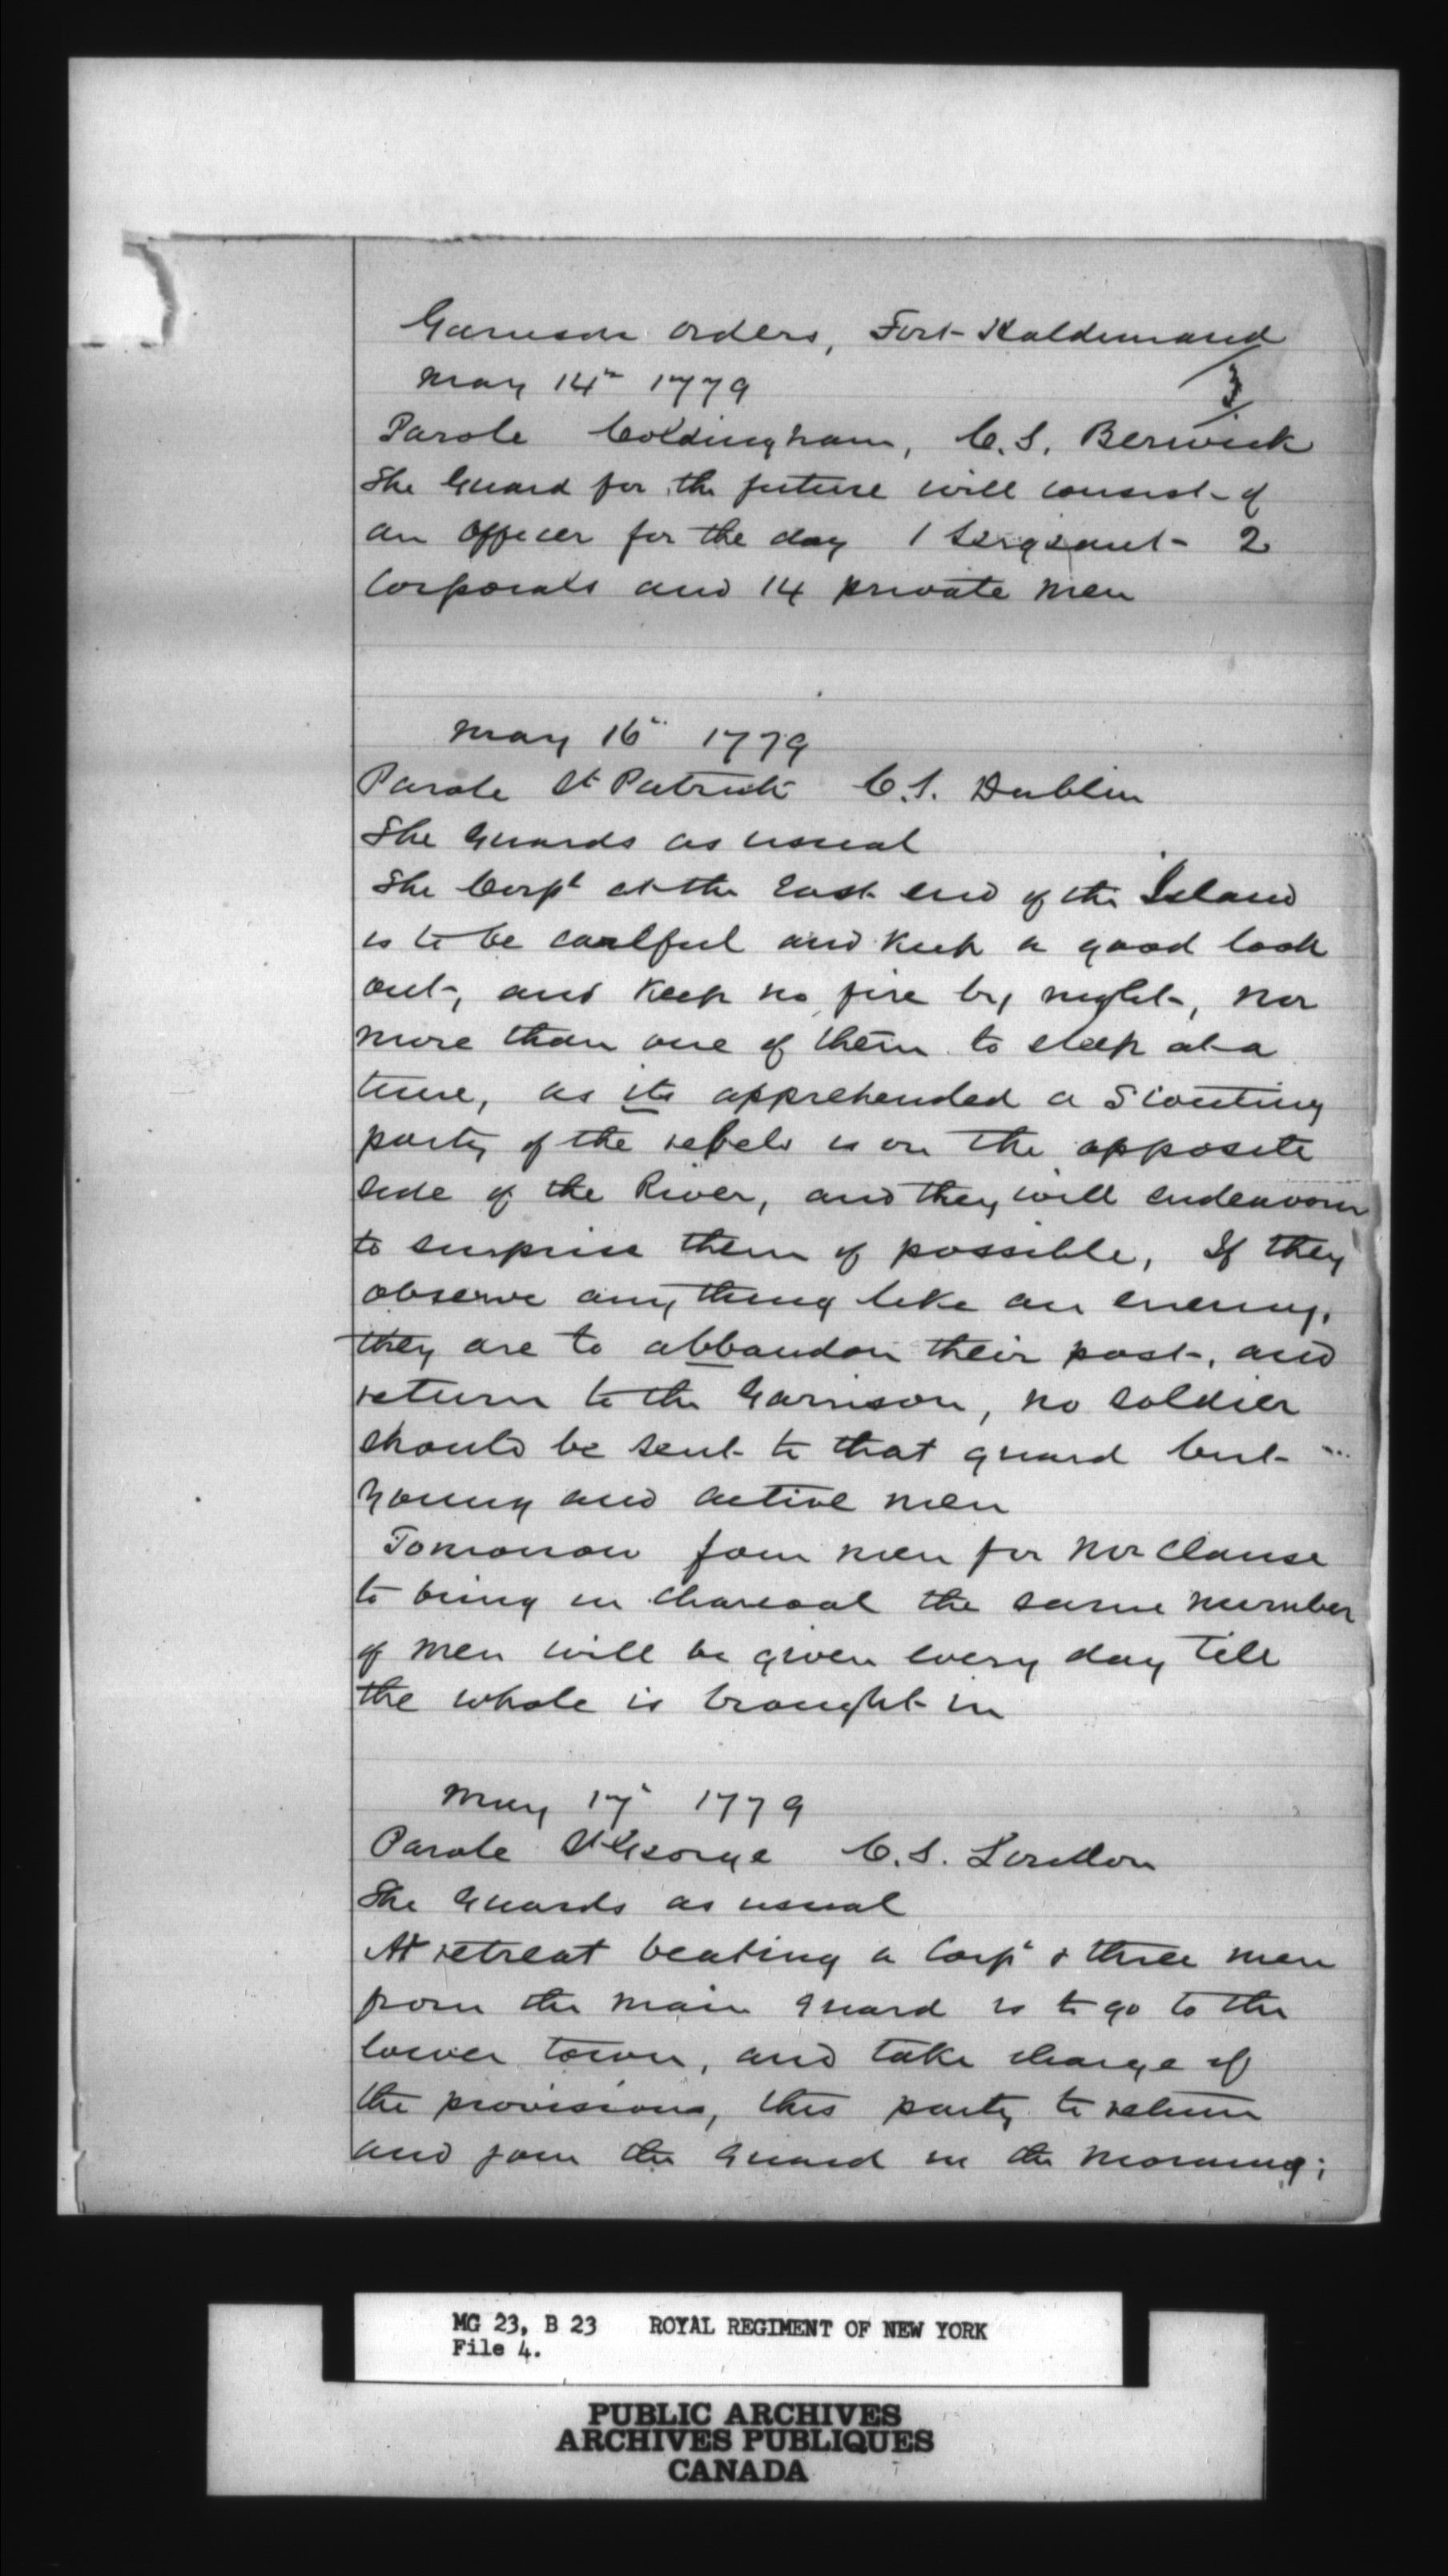 Garrison orders, Fort Haldimand
May 14th 1779
3
Parole Coldingham, C.S. Berwick
The Guard for the future will consist of
an Officer for the day 1 Sergeant 2
Corporals and 14 private men
May 16th 1779
Parole St Patrick C.S. Dublin
The Guards as usual
The Corpl at the East end of the Island
is to be carlful and keep a good look
out, and keep no fire by night, nor
more than one of them to sleep at a
time, as its apprehended a Scouting
party of the rebels is on the opposite
side of the River, and they will endeavour
to surprise them if possible, If they
observe any thing like an enemy,
they are to abbandon their post, and
return to the Garrison, no soldier
should be sent to that guard but
young and active men
Tomorrow four men for Mr Clause
to bring in charcoal the same number
of men will be given every day till
the whole is brought in
May 17th 1779
Parole St George C.S. London
The Guards as usual
At retreat beating a Corpl & three men
from the main Guard is to go to the
lower town, and take charge of
the provisions, this party to return
and join the Guard in the morning;
MG 23, B 23 ROYAL REGIMENT OF NEW YORK
File 4.
PUBLIC ARCHIVES
ARCHIVES PUBLIQUES
CANADA